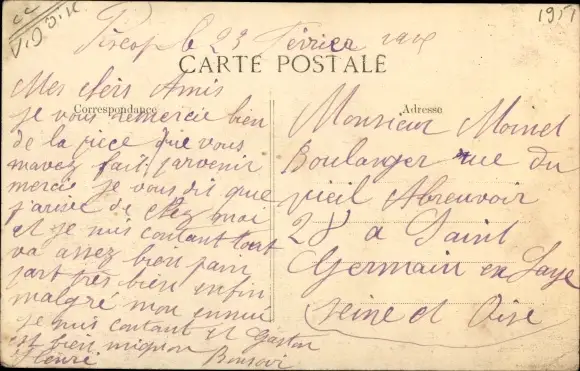 V.D.O.K
1957
Piscop le 23 Février
CARTE POSTALE
Correspondance
Adresse
Mes chers Amis
je vous remercie bien
de la piece que vous
mavez fait parvenir
merci je vous dis que
j'arive de chez moi
et je suis contant tout
va assez bien
part très bien enfin
malgré mon ennui
je suis contant et Gaston
est bien mignon Bonsoir
Henri
Monsieur Moinet
Boulanger rue du
vieil Abreuvoir
28 a Saint
Germain en Laye
Seine et Oise